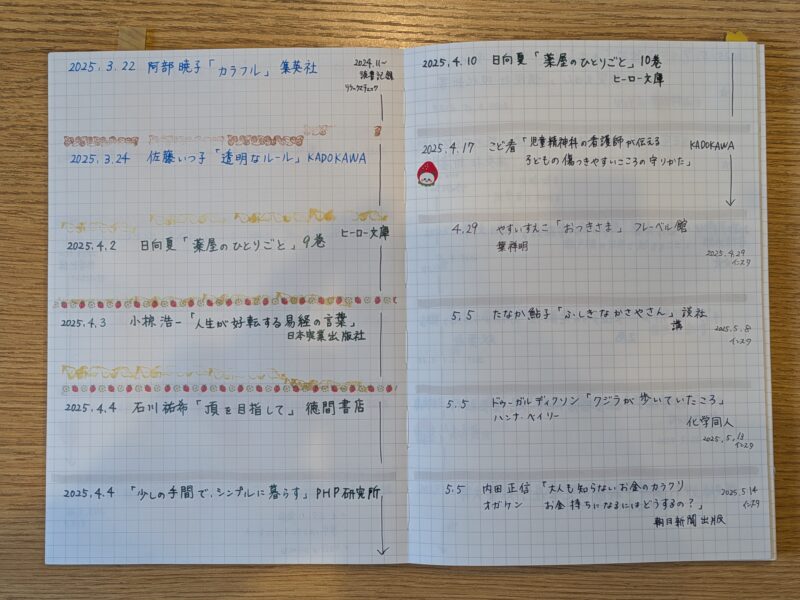 2025.3.22 阿部暁子「カラフル」集英社
2024.11〜
読書記録
リラックスチェック
2025.3.24 佐藤いつ子「透明なルール」KADOKAWA
2025.4.2 日向夏「薬屋のひとりごと」9巻
ヒーロー文庫
2025.4.3 小椋浩一「人生が好転する易経の言葉」
日本実業出版社
2025.4.4 石川祐希「頂を目指して」徳間書店
2025.4.4 「少しの手間で、シンプルに暮らす」PHP研究所
2025.4.10 日向夏「薬屋のひとりごと」10巻
ヒーロー文庫
2025.4.17 こど看「児童精神科の看護師が伝える KADOKAWA
子どもの傷つきやすいこころの守りかた」
4.29 やすいすえこ「おつきさま」フレーベル館
葉祥明
2025.4.29
インスタ
5.5 たなか鮎子「ふしぎなかさやさん」談社
講
2025.5.8
インスタ
5.5 ドゥーガルディクソン「クジラが歩いていたころ」
ハンナ・ベイリー
化学同人
2025.5.13
インスタ
5.5 内田正信「大人も知らないお金のカラクリ
オガケン お金持ちになるにはどうするの?」
2025.5.14
インスタ
朝日新聞出版